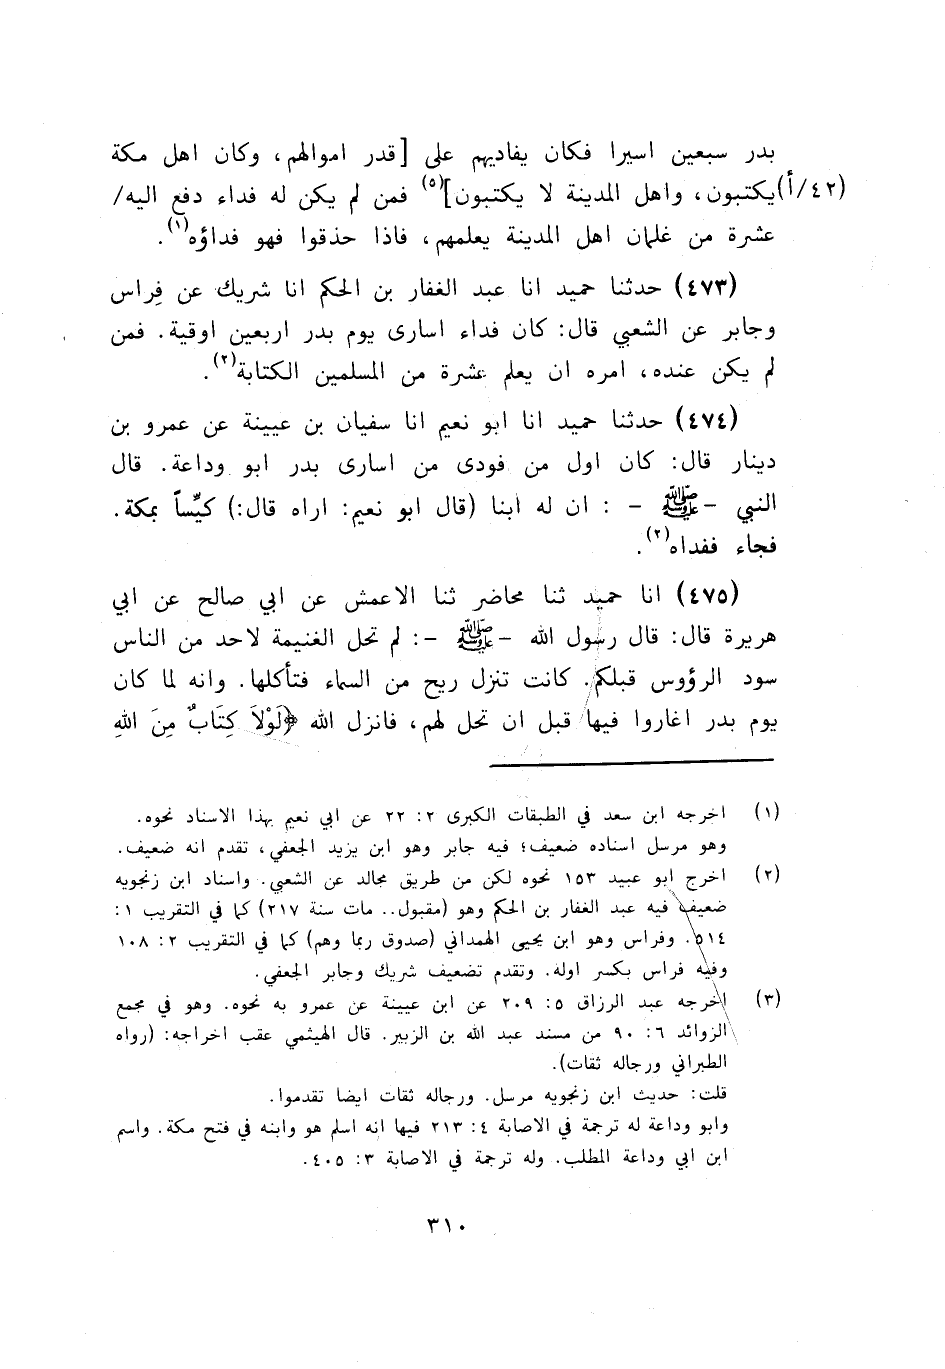 بدر سبعين اسيرا فكان يفاديهم على [قدر اموالهم، وكان اهل مكة
(٤٢/أ) يكتبون، واهل المدينة لا يكتبون](٥) فمن لم يكن له فداء دفع اليه/
عشرة من غلمان اهل المدينة يعلمهم، فاذا حذقوا فهو فداؤه(١).
(٤٧٣) حدثنا حميد انا عبد الغفار بن الحكم انا شريك عن فِراس
وجابر عن الشعبي قال: كان فداء اسارى يوم بدر اربعين اوقية. فمن
لم يكن عنده، امره ان يعلم عشرة من المسلمين الكتابة(٢).
(٤٧٤) حدثنا حميد انا ابو نعيم انا سفيان بن عيينة عن عمرو بن
دينار قال: كان اول من فودى من اسارى بدر ابو وداعة. قال
النبي - ﷺ - : ان له ابنا (قال ابو نعيم: اراه قال:) كيِّساً بمكة.
فجاء ففداه(٣).
(٤٧٥) انا حميد ثنا محاضر ثنا الاعمش عن ابي صالح عن ابي
هريرة قال: قال رسول الله - ﷺ -: لم تحل الغنيمة لاحد من الناس
سود الرؤوس قبلكم. كانت تنزل ريح من السماء فتأكلها. وانه لما كان
يوم بدر اغاروا فيها قبل ان تحل لهم، فانزل الله ﴿لَوْلاَ كِتَابٌ مِنَ اللهِ
(١) اخرجه ابن سعد في الطبقات الكبرى ٢: ٢٢ عن ابي نعيم بهذا الاسناد نحوه.
وهو مرسل اسناده ضعيف؛ فيه جابر وهو ابن يزيد الجعفي، تقدم انه ضعيف.
(٢) اخرج ابو عبيد ١٥٣ نحوه لكن من طريق مجالد عن الشعبي. واسناد ابن زنجويه
ضعيف فيه عبد الغفار بن الحكم وهو (مقبول.. مات سنة ٢١٧) كما في التقريب ١:
٥١٤. وفراس وهو ابن يحيى الهمداني (صدوق ربما وهم) كما في التقريب ٢: ١٠٨
وفيه فراس بكسر اوله. وتقدم تضعيف شريك وجابر الجعفي.
(٣) اخرجه عبد الرزاق ٥: ٢٠٩ عن ابن عيينة عن عمرو به نحوه. وهو في مجمع
الزوائد ٦: ٩٠ من مسند عبد الله بن الزبير. قال الهيثمي عقب اخراجه: (رواه
الطبراني ورجاله ثقات).
قلت: حديث ابن زنجويه مرسل. ورجاله ثقات ايضا تقدموا.
وابو وداعة له ترجمة في الاصابة ٤: ٢١٣ فيها انه اسلم هو وابنه في فتح مكة. واسم
ابن ابي وداعة المطلب. وله ترجمة في الاصابة ٣: ٤٠٥.
٣١٠